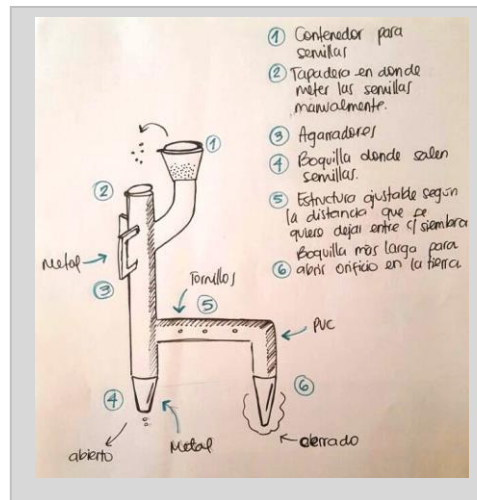 ① Contenedor para
semillas
② Tapadera en donde
meter las semillas
manualmente.
③ Agarradores
④ Boquilla donde salen
semillas.
⑤ Estructura ajustable según
la distancia que se
quiere dejar entre c/siembra
Boquilla más larga para
⑥ abrir orificio en la tierra
①
②
Metal
③
Tornillos
⑤
PVC
④
⑥
Metal
cerrado
abierto